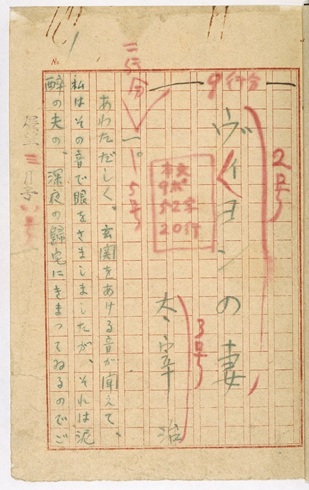 9行分
2号
ヴィヨンの妻
3号
太宰治
本文
9ポ
52字
20行
一。
5号
あわただしく、玄関をあける音が聞えて、
私はその音で眼をさましましたが、それは泥
醉の夫の、深夜の歸宅にきまつてゐるのでご